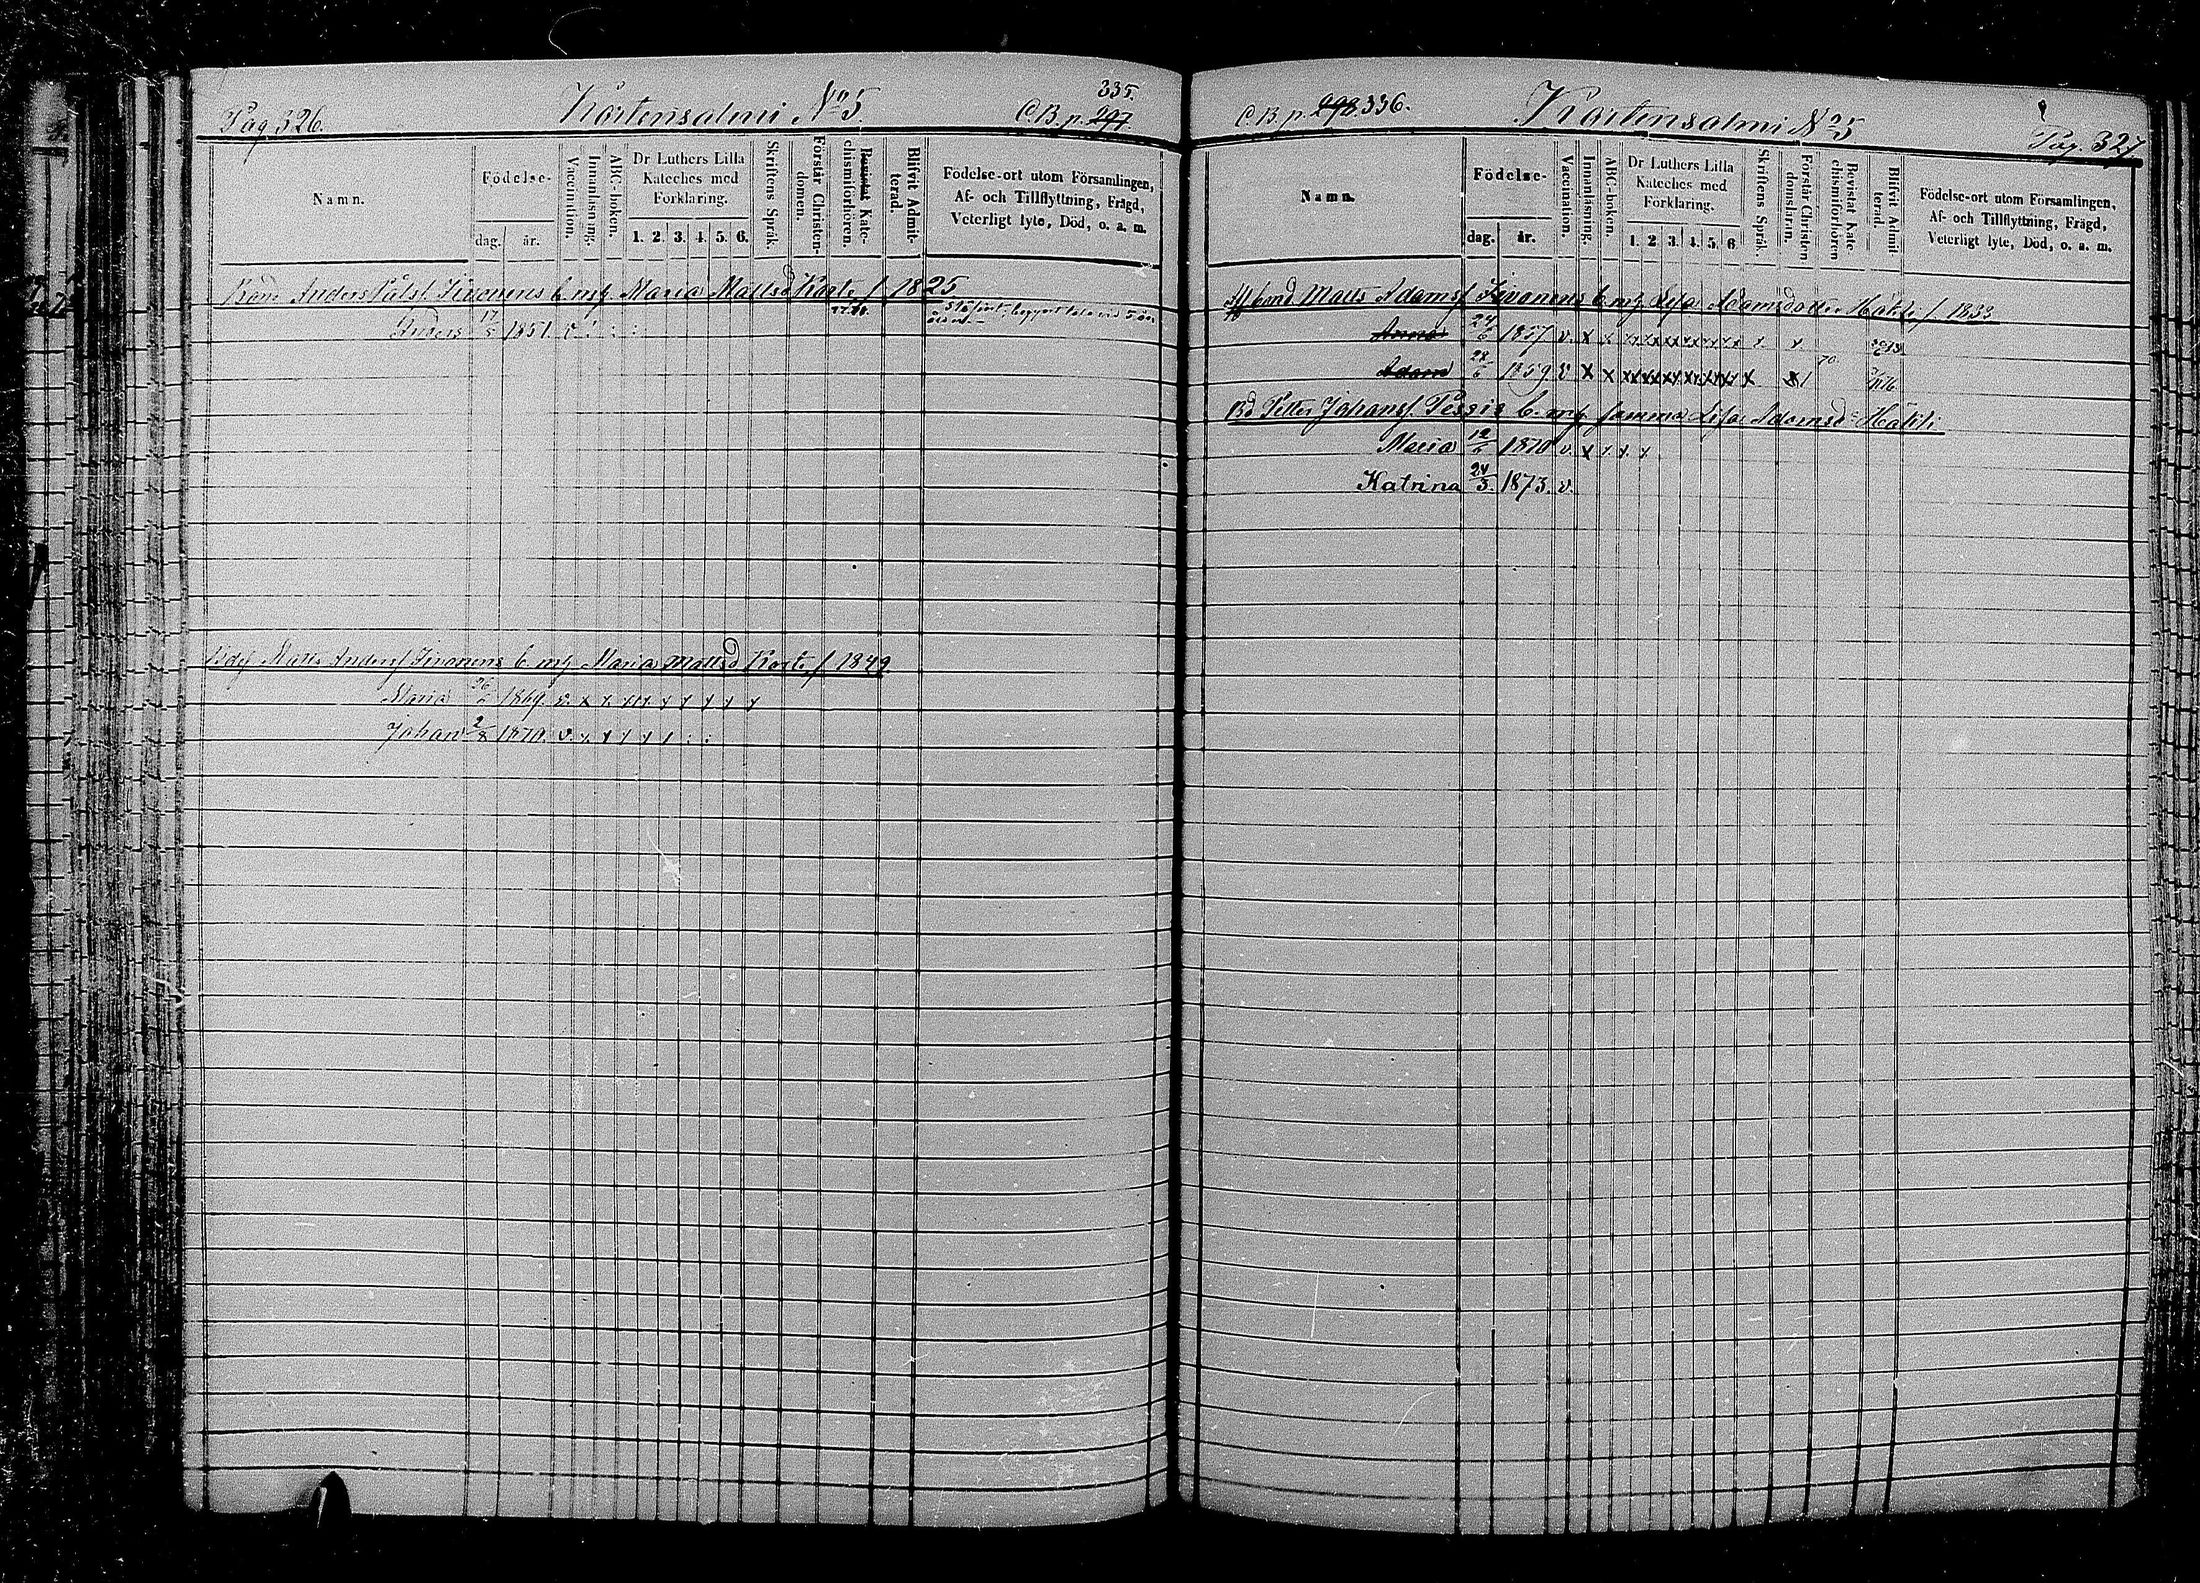 Pag 326.
Kortensalmi No 5.
335.
C.B.p. 297
Namn.
Födelse-
dag.
år.
Vaccination.
Innanläsning.
ABC-boken.
Dr Luthers Lilla
Kateches med
Förklaring.
1. 2. 3. 4. 5. 6.
Skriftens Språk.
Förstår Christen-
domen.
Bevistat Kate-
chismiförhören.
Blifvit Admit-
terad.
Födelse-ort utom Församlingen,
Af- och Tillflyttning, Frägd,
Veterligt lyte, Död, o. a. m.
Bond Anders Pålsf Iivonens b. mg Maria Mattsd Korte f 1825
Anders 17/5 1851. v
Matts Andersf Iivonens b. mg Maria Mattsd Korte f 1849
Maria 1869. v. x
Johan 2/8 1870. v. x
C.B.p. 298 336.
Kortensalmi No 5
Pag. 327
Namn.
Födelse-
dag.
år.
Vaccination.
Innanläsning.
ABC-boken.
Dr Luthers Lilla
Kateches med
Förklaring.
1. 2. 3. 4. 5. 6
Skriftens Språk.
Förstår Christen
domslärn.
Bevistat Kate
chismiförhören
Blifvit Admit
terad.
Födelse-ort utom Församlingen,
Af- och Tillflyttning, Frägd,
Veterligt lyte, Död, o. a. m.
Aff bond Matts Adamsf Iivonens b. mg Lisa Adamsdotter Häkli f 1833
Anna 24/6 1857 v. x
Adam 28/6 1859 v x x
Bd Petter Johansf Pessis b. mg samma Lisa Adamsd Häkli
Maria 12/6 1870 v. x
Katrina 24/3. 1873. v.